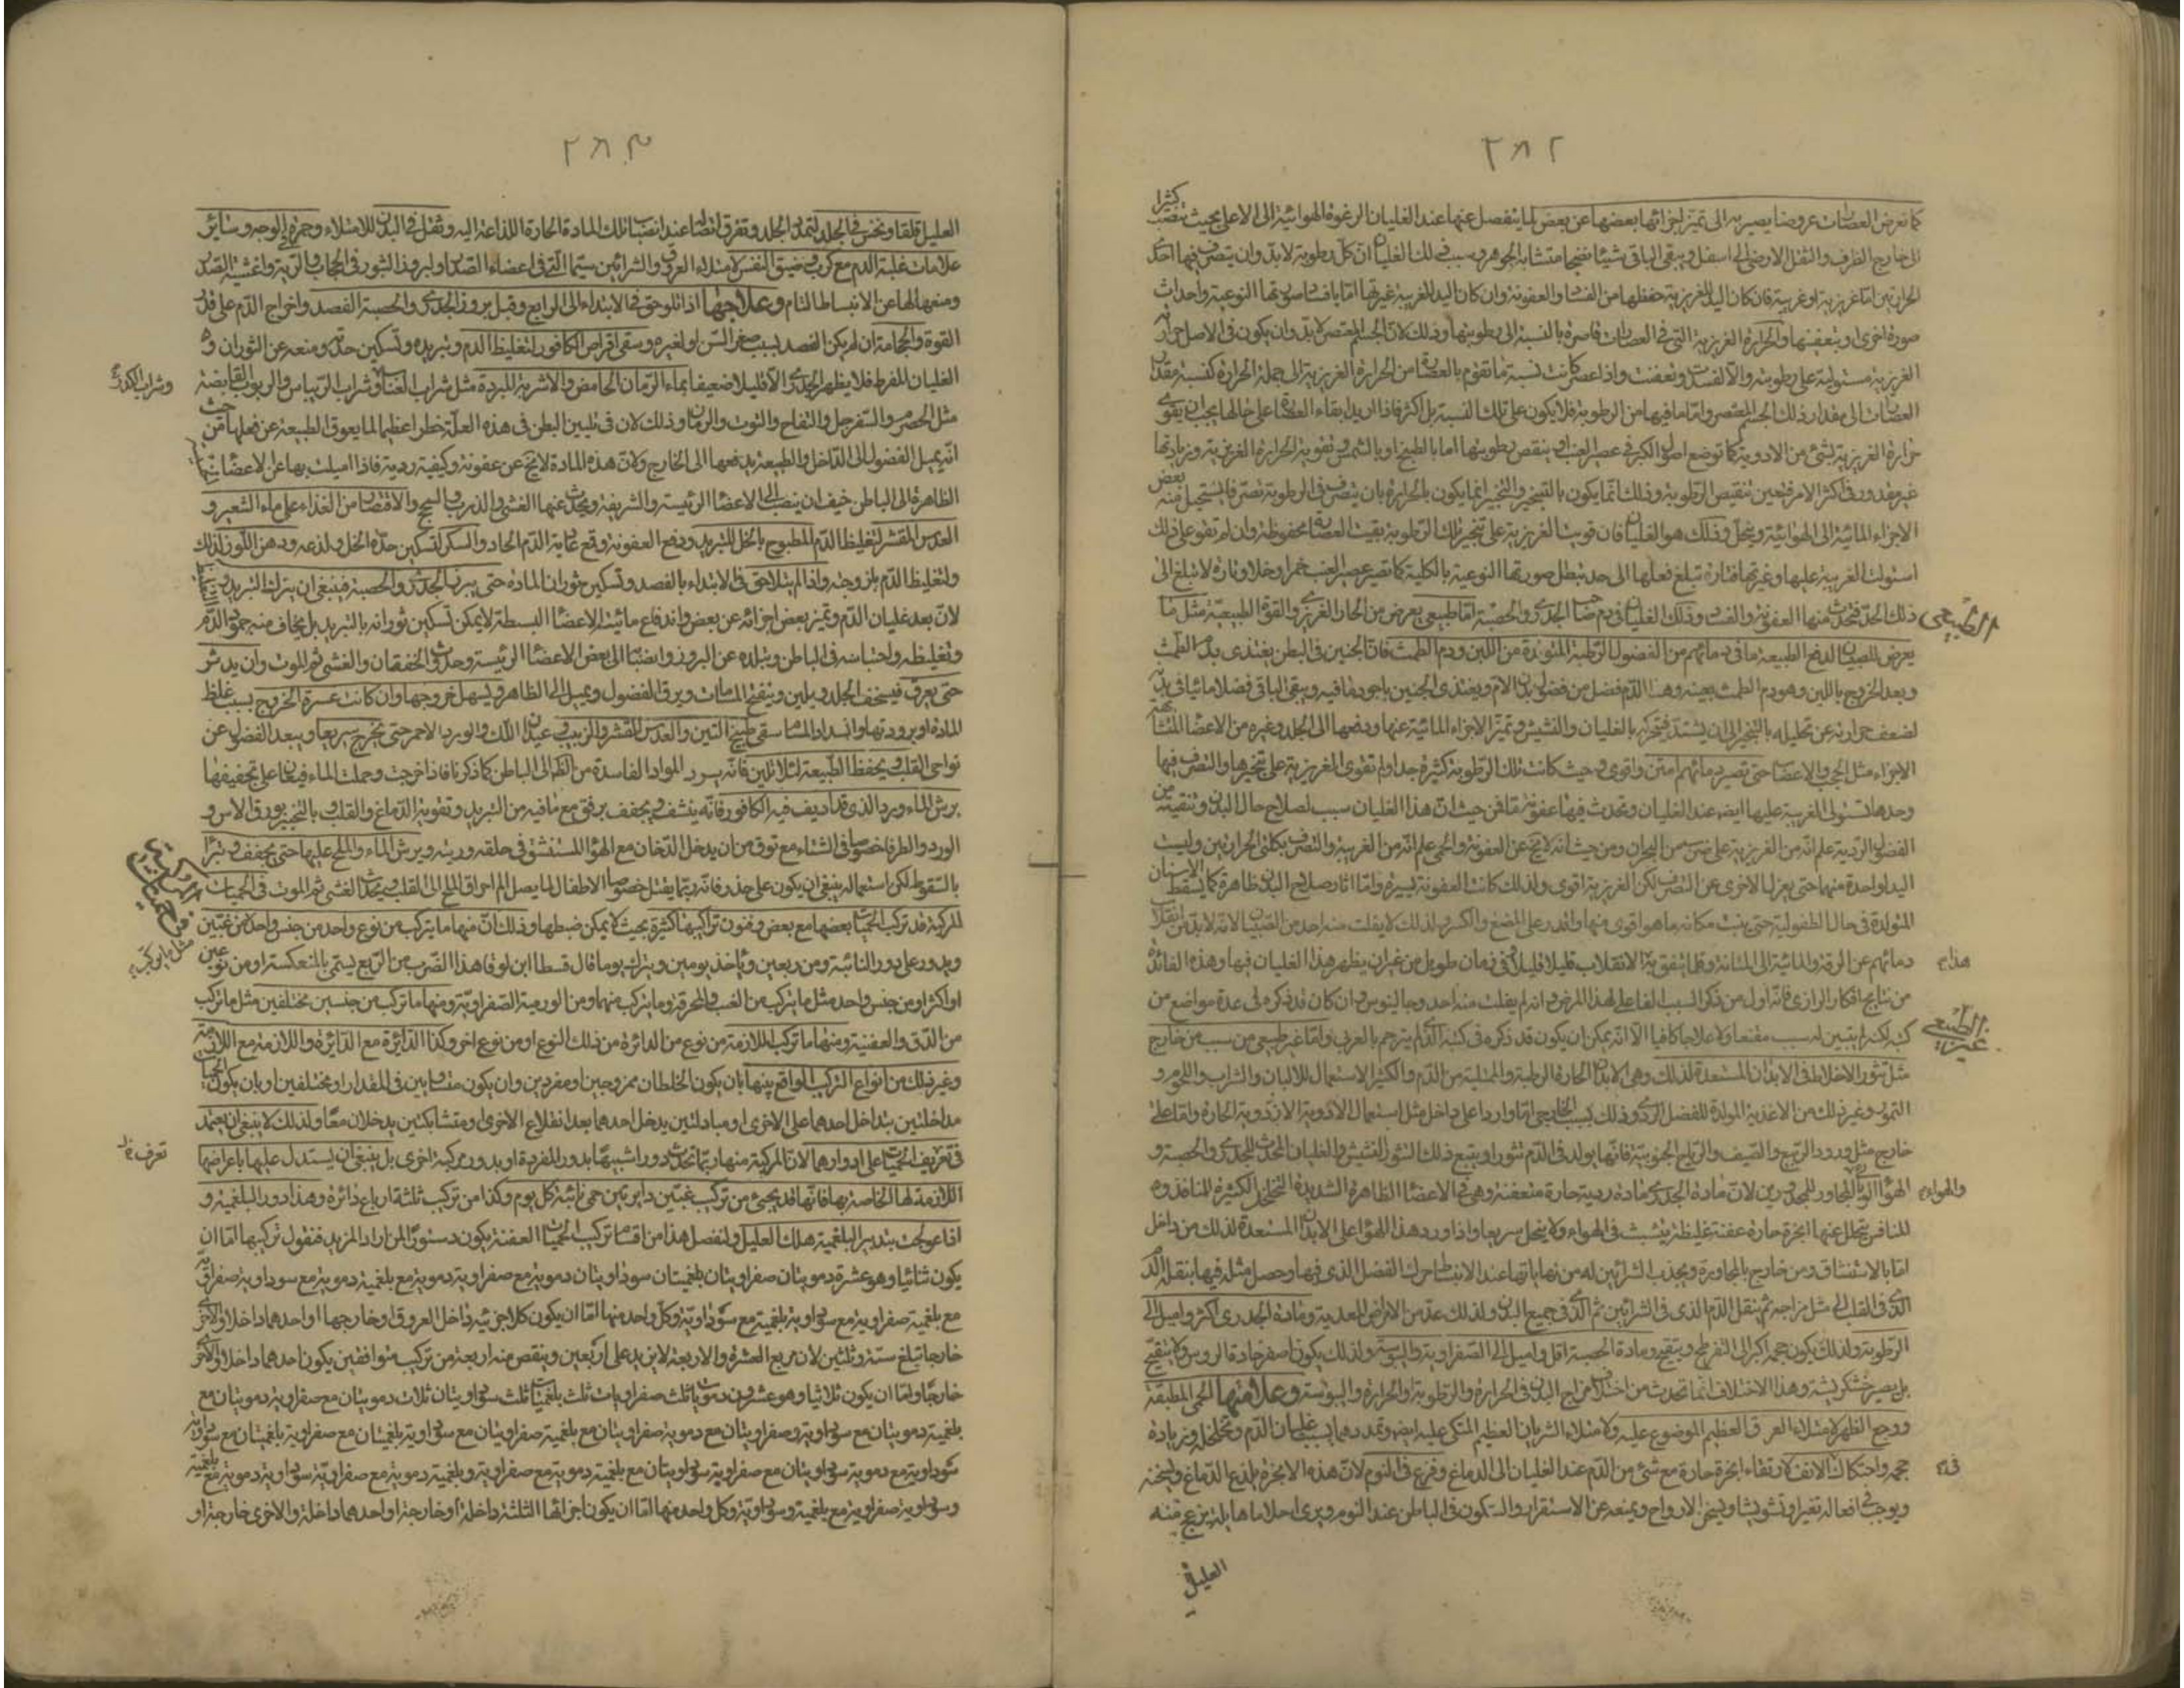 ٢٨٢
كثيرا
كما تعرض العصارات عروضا يصير به الى تميز اجزائها بعضها عن بعض لما ينفصل عنها عند الغليان الرغوة الهوائية الى الاعلى بحيث تنصب
الى خارج الظرف والثقل الارضى الى اسفل ويبقى الباقى شيئا نضيجا متشابه الجوهر وسبب ذلك الغليان ان كل رطوبة لابد وان يتصرف فيها احدى
الحرارتين اما غريزية او غريبة فان كان اليد للغريزية حفظها من الفساد والعفونة وان كان اليد للغريبة غيرتها اما بافساد صورتها النوعية واحداث
صورة اخرى او بتعفينها والحرارة الغريزية التى فى العصارات قاصرة بالنسبة الى رطوبتها وذلك لان الجسم المعتصر لابد وان يكون فى الاصل حرارته
الغريزية مستولية على رطوبته والا لفسدت وتعفنت واذا عصر كانت نسبة ما تقوم بالعصارة من الحرارة الغريزية الى جملة الحرارة كنسبة مقدار
العصارات الى مقدار ذلك الجسم المعتصر واما ما فيها من الرطوبة فلا يكون على تلك النسبة بل اكثر فاذا اريد بقاء العصارة على حالها يجب ان يقوى
حرارة الغريزية بشئ من الادوية كما توضع اصول الكبر فى عصير العنب او ينقص رطوبتها اما بالطبخ او بالشمس وتقوية الحرارة الغريزية وزيادتها
غير مقدور فى اكثر الامر فتعين تنقيص الرطوبة وذلك انما يكون بالتبخير والتبخير انما يكون بالحرارة بان يتصرف فى الرطوبة تصرفا يستحيل منه بعض
الاجزاء المائية الى الهوائية ويتحلل وذلك هو الغليان فان قويت الغريزية على تبخير تلك الرطوبة بقيت العصارة محفوظة وان لم تقو على ذلك
استولت الغريبة عليها وغيرتها فتارة تبلغ فعلها الى حد تبطل صورتها النوعية بالكلية كما تصير عصير العنب خمرا وخلا وتارة لا تبلغ الى
الطبيعى
ذلك الحد فتحدث منها العفونة والفساد وذلك الغليان فى دم صاحب الجدرى والحصبة اما طبيعى يعرض من الحار الغريزى والقوة الطبيعية مثل ما
يعرض للصبيان لدفع الطبيعة ما فى دمائهم من الفضول الرطبة المتولدة من اللبن ودم الطمث فان الجنين فى البطن يغتذى بدم الطمث
وبعد الخروج باللبن وهو دم الطمث بعينه وهذا الدم فضل من فضول بدن الام ويغتذى الجنين باجود ما فيه ويبقى الباقى فضلا مائيا فى بدنه
لضعف حرارته عن تحليله بالتبخير الى ان يشتد فيتحرك بالغليان والنشيش وتميز الاجزاء المائية عنها ودفعها الى الجلد وغيره من الاعضا المتشابهة
الاجزاء مثل الحجب والاعصاب حتى تصير دمائهم امتن واقوى وحيث كانت تلك الرطوبة كثيرة جدا ولم تقوى الغريزية على تبخيرها والتصرف فيها
وحدها تستولى الغريبة عليها ايضا عند الغليان وتحدث فيها عفونة ما فمن حيث ان هذا الغليان سبب لصلاح حال البدن وتنقيته من
الفضول الردية علم انه من الغريزية على ضرب من البحران ومن حيث انه لا يخ عن العفونة والحمى علم انه من الغريبة والتصرف بكلتى الحرارتين وليست
اليد لواحدة منهما حتى يعزل الاخرى عن التصرف لكن الغريزية اقوى ولذلك كانت العفونة يسيرة واما اثار صلاح البدن ظاهرة كما يسقط الاسنان
المتولدة فى حال الطفولية حتى ينبت مكانه ما هو اقوى منها واقدر على المضغ والكسر ولذلك لا يفلت منه احد من الصبيان لانه لابد من انقلاب
هذا
دمائهم عن الرقة والمائية الى المتانة وقل ما يتفق هذا الانقلاب قليلا قليلا فى زمان طويل من غير ان يظهر هذا الغليان فيها وهذه الفائدة
من نتايج افكار الرازى فانه اول من ذكر السبب الفاعلى لهذا المرض وانه لم يفلت منه احد وجالينوس وان كان قد ذكره فى عدة مواضع من
الطبيعى
غير
كتبه لكن لم يتبين له سبب مقنعا ولا علاجا كافيا الا انه يمكن ان يكون قد ذكره فى كتبه التى لم يترجم بالعربى واما غير طبيعى من سبب من خارج
مثل تثور الاخلاط فى الابدان المستعدة لذلك وهى الابدان الحارة الرطبة والممتلية من الدم والكثير الاستعمال للالبان والشراب واللحوم و
التمور وغير ذلك من الاغذية المولدة للفضل الردى وذلك بسبب الخارجى اما واردا على داخل مثل استعمال الادوية الحارة واما على
خارج مثل ورود الربيع والصيف والرياح الجنوبية فانها يولد فى الدم تثورا ويتبع ذلك التثور النشيش والغليان المحدث للجدرى والحصبة و
والهواء
الهواء الوبائى المجاور للمجدورين لان مادة الجدرى مادة ردية حارة متعفنة وهى فى الاعضا الظاهرة الشديدة التخلخل الكثيرة المنافذ و
المنافس يتحلل عنها ابخرة حارة عفنة غليظة يتشبث فى الهواء ولا يتحلل سريعا واذا ورد هذا الهوا على الابدان المستعدة لذلك من داخل
اما بالاستنشاق ومن خارج بالمجاورة ويجذب الشرائين له من نهاياتها عند الانبساط حرك الفضل الذى فيها وحصل مثله فيها ينقل الدم
الذى فى القلب الى مثل مزاجه ثم ينقل الدم الذى فى الشرائين ثم الذى فى جميع البدن ولذلك عد من الامراض المعدية ومادة الجدرى اكثر واميل الى
الرطوبة ولذلك يكون حجمه اكبر الى التفرطح ويتقيح ومادة الحصبة اقل واميل الى الصفراوية واليبوسة ولذلك يكون اصغر حادة الروس ولا يتقيح
بل يصير خشكريشة وهذا الاختلاف انما تحدث من اختلاف مزاج البدن فى الحرارة والرطوبة والحرارة واليبوسة وعلامتها الحمى المطبقة
ووجع الظهر لامتلاء العرق العظيم الموضوع عليه ولامتلاء الشريان العظيم المتكى عليه ايضا وتمددهما بسبب غليان الدم وتخلخله وزيادة
فى
حجمه واحتكاك الانف لارتقاء ابخرة حارة مع شئ من الدم عند الغليان الى الدماغ وفزع فى النوم لان هذه الابخرة يلذع الدماغ ويسخنه
ويوجب فى افعاله تغيرا وتشويشا ويسخن الارواح ويمنعه عن الاستقرار والسكون فى الباطن عند النوم ويرى احلاما هايلة يزعج منه
العليل
٢٨٣
العليل قلقا ونخس فى الجلد لتمدد الجلد وتفرق اتصاله عند انصباب تلك المادة الحارة اللذاعة اليه وثقل فى البدن للامتلاء وحمرة فى الوجه وسائر
علامات غلبة الدم مع كرب وضيق النفس لامتلاء العروق والشرائين سيما التى فى اعضاء الصدر او لبروز البثور فى الحجاب والرية واغشية الصدر
ومنعها لها عن الانبساط التام وعلاجها اذا تلوحق فى الابتداء الى الرابع وقبل بروز الجدرى والحصبة الفصد واخراج الدم على قدر
القوة والحجامة ان لم يكن الفصد بسبب صغر السن او لغيره وسقى اقراص الكافور لتغليظ الدم وتبريده وتسكين حدته ومنعه عن الثوران و
وشراب الكدر
الغليان المفرط فلا يظهر الجدرى الا قليلا ضعيفا بماء الرمان الحامض والاشربة المبردة مثل شراب العناب وشراب الريباس والربوب القابضة
مثل الحصرم والسفرجل والتفاح والتوت والرمان وذلك لان فى تليين البطن فى هذه العلة خطرا عظيما لما يعوق الطبيعة عن فعلها من حيث
انه يميل الفضول الى الداخل والطبيعة يدفعها الى الخارج ولان هذه المادة لا يخ عن عفونة وكيفية ردية فاذا اميلت بها عن الاعضا
الظاهرة الى الباطن خيف ان ينصب الى الاعضا الرئيسة والشريفة ويحدث عنها الغشى والذرب والسحج والاقتصار من الغذاء على ماء الشعير و
العدس المقشر لتغليظ الدم المطبوخ بالخل للتبريد ودفع العفونة وقمع غاية الدم الحاد والسكر لتسكين حدة الخل ولذعه ودهن اللوز لذلك
ولتغليظ الدم بلزوجته واذا لم يتلاحق فى الابتداء بالفصد وتسكين ثوران المادة حتى يبرز الجدرى والحصبة فينبغى ان يترك التبريد
لان بعد غليان الدم وتميز بعض اجزائه عن بعض واندفاع مائيته الى الاعضا البسيطة لا يمكن تسكين ثورانه بالتبريد بل يخاف منه جمود الدم
وتغليظه واحتباسه فى الباطن وتبلده عن البروز وانصبابه الى بعض الاعضا الرئيسة وحدوث الخفقان والغشى ثم الموت وان يدثر
حتى يعرق فيسخف الجلد ويلين وينفتح المسامات ويرق الفضول ويميل الى الظاهر ويسهل خروجها وان كانت عسرة الخروج بسبب غلظ
المادة او برودتها وانسداد المسام سقى طبيخ التين والعدس المقشر والزبيب وعيدان اللك والورد الاحمر حتى يخرج سريعا ويبعد الفضول عن
نواحى القلب ويحفظ الطبيعة لئلا تلين فانه يرد المواد الفاسدة من الظاهر الى الباطن كما ذكرنا فاذا خرجت وحملت الماء فيعان على تجفيفها
برش الماء ورد الذى قد اديف فيه الكافور فانه ينشف ويجفف برفق مع ما فيه من التبريد وتقوية الدماغ والقلب وبالتبخير بورق الآس و
الورد والطرفا خصوصا فى الشتاء مع توق من ان يدخل الدخان مع الهوا المستنشق فى حلقه وريته ويرش الماء والملح عليها حتى يجفف وتبرا
بالسقوط لكن استعماله ينبغى ان يكون على حذر فانه ربما يقتل خصوصا الاطفال لما يصل الم احراق الملح الى القلب فيحدث الغشى ثم الموت فى الحميات
المركبة قد تركب الحميات بعضها مع بعض وفنون تراكيبها كثيرة بحيث لا يمكن ضبطها وذلك ان منها ما يتركب من نوع واحد من جنس واحد من غبتين
ويدور على دور النائبة ومن ربعين وياخذ يومين ويترك يوما قال قسطا ابن لوقا هذا الضرب من الربع يسمى بالمنعكسة او من نوعين
او اكثر او من جنس واحد مثل ما يتركب من الغب والمحرقة وما يتركب منهما ومن الورمية الصفراوية ومنها ما تركب من جنسين مختلفين مثل ما تركب
من الدق والعفنية ومنها ما تركب اللازمة من نوع من الدائرة من ذلك النوع او من نوع اخر وكذا الدائرة مع الدائرة واللازمة مع اللازمة
وغير ذلك من انواع التركيب الواقع بينها بان يكون الخلطان ممزوجين او مفردين وان يكون متساويين فى المقدار او مختلفين او بان يكون الحميات
مداخلتين يتداخل احدهما على الاخرى او مبادلتين يدخل احدهما بعد انقلاع الاخرى او متشابكتين يدخلان معا ولذلك لا ينبغى ان يعتمد
تعرف خ
فى تعريف الحميات على ادوارها لان المركبة منها ربما تحدث دورا شبيها بدور المفردة او بدور مركبة اخرى بل ينبغى ان يستدل عليها باعراضها
اللازمة لها الخاصة بها فانها قد يجئ من تركيب غبتين دايرتين حمى نائبة كل يوم وكذا من تركيب ثلثة ارباع دائرة وهذا دور البلغمية و
اذا عولجت بتدبير البلغمية هلك العليل ولنفصل هذا من اقسام تركيب حميات العفنة يكون دستورا لمن اراد المزيد فنقول تركيبها اما ان
يكون ثنائيا وهو عشرة دمويتان صفراويتان بلغميتان سوداويتان دموية مع صفراوية دموية مع بلغمية دموية مع سوداوية صفراوية
مع بلغمية صفراوية مع سوداوية بلغمية مع سوداوية وكل واحد منها اما ان يكون كلا جزئيه داخل العروق او خارجها او احدهما داخلا والاخر
خارجا تبلغ ستة وثلثين لان مربع العشرة والاربعة لا يزيد على اربعين وينقص منه اربعة من تركيب متوافقين يكون احدهما داخلا والاخر
خارجا واما ان يكون ثلاثيا وهو عشرون دمويات ثلث صفراويات ثلث بلغميات ثلث سوداويتان ثلاث دمويتان مع صفراوية دمويتان مع
بلغمية دمويتان مع سوداوية وصفراويتان مع دموية صفراويتان مع بلغمية صفراويتان مع سوداوية بلغميتان مع صفراوية بلغميتان مع سوداوية
سوداوية مع دموية سوداويتان مع صفراوية سوداويتان مع بلغمية دموية مع صفراوية وبلغمية دموية مع صفراوية سوداوية دموية مع بلغمية
وسوداوية صفراوية مع بلغمية وسوداوية وكل واحد منها اما ان يكون اجزائها الثلثة داخلة او خارجة او احدهما داخلة والاخرى خارجة او